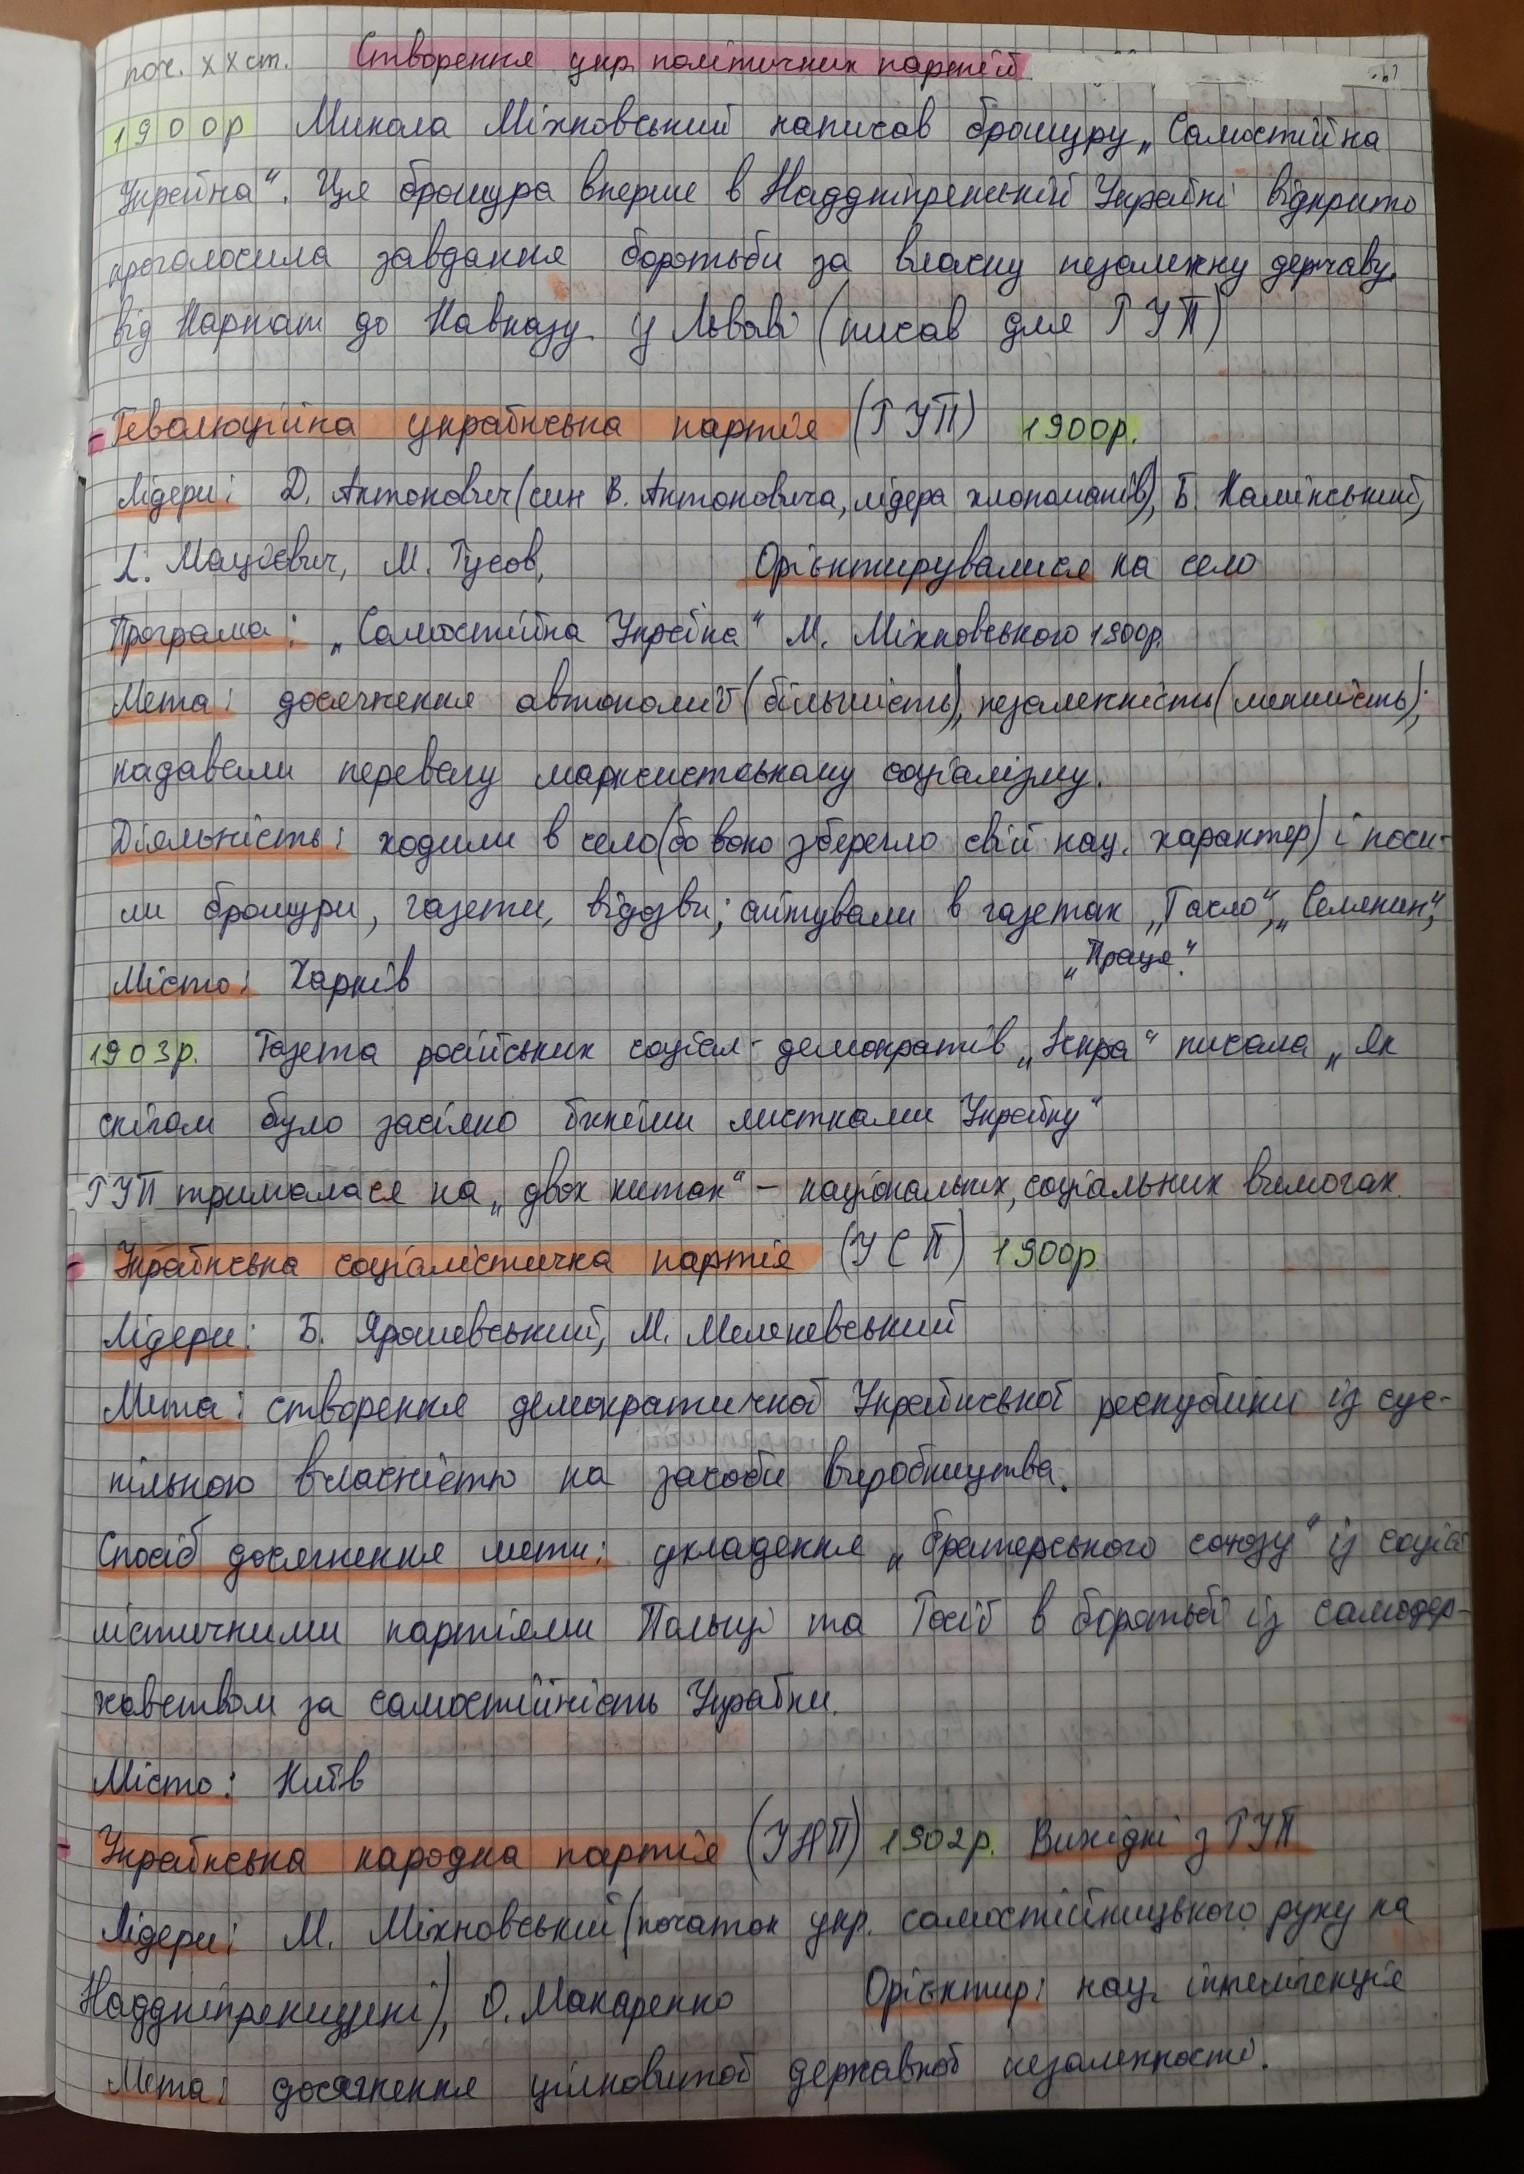 поч. ХХ ст. Створення укр. політичних партій
1900р Микола Міхновський написав брошуру „Самостійна
Україна“. Ця брошура вперше в Наддніпрянській Україні відкрито
проголосила завдання боротьби за власну незалежну державу.
від Карпат до Кавказу у Львові (писав для РУП)
- Революційна українська партія (РУП) 1900р.
Лідери: Д. Антонович (син В. Антоновича, лідера хлопоманів), Б. Камінський,
Л. Мацієвич, М. Русов, Орієнтирувалися на село
Програма: „Самостійна Україна“ М. Міхновського 1900р.
Мета: досягнення автономії (більшість), незалежність (меншість);
надавали перевагу марксистському соціалізму.
Діяльність: ходили в село (бо воно зберегло свій нац. характер) і носи-
ли брошури, газети, відозви; агітували в газетах „Гасло“, „Селянин“,
„Праця“.
Місто: Харків
1903р. Газета російських соціал-демократів „Іскра“ писала „Як
снігом було засіяно їхніми листками Україну“
РУП трималася на „двох китах“ – національних, соціальних вимогах.
- Українська соціалістична партія (УСП) 1900р
Лідери: Б. Ярошевський, М. Меленевський
Мета: створення демократичної Української республіки із сус-
пільною власністю на засоби виробництва.
Спосіб досягнення мети: укладення „братерського союзу“ із соціа
лістичними партіями Польщі та Росії в боротьбі із самодер-
жавством за самостійність України.
Місто: Київ
- Українська народна партія (УНП) 1902р. Вихідці з РУП
Лідери: М. Міхновський (початок укр. самостійницького руху на
Наддніпрянщині), О. Макаренко Орієнтир: нац. інтелігенція
Мета: досягнення цілковитої державної незалежності.